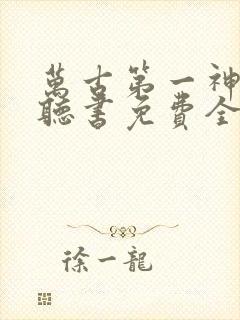 萬古第一神
聽書免費全
徐一龍